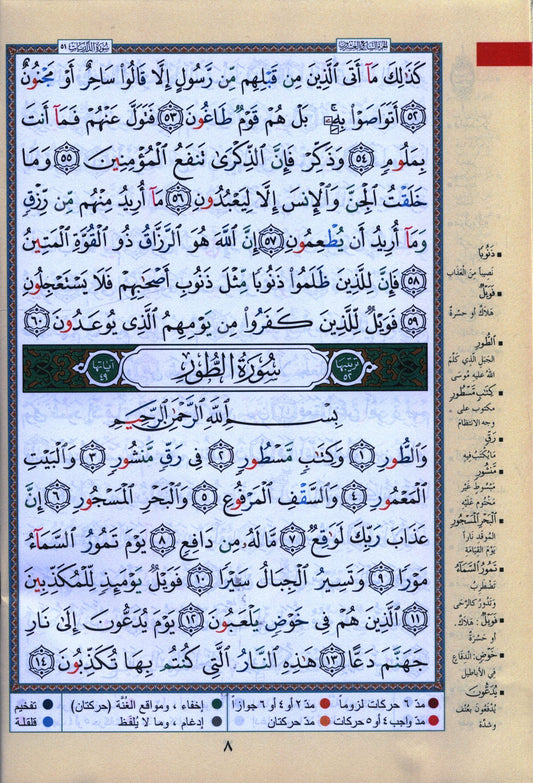 سورة الذاريات ٥١
الجزء السابع والعشرون
كَذَٰلِكَ مَآ أَتَى ٱلَّذِينَ مِن قَبْلِهِم مِّن رَّسُولٍ إِلَّا قَالُوا۟ سَاحِرٌ أَوْ مَجْنُونٌ
٥٢ أَتَوَاصَوْا۟ بِهِۦ ۚ بَلْ هُمْ قَوْمٌ طَاغُونَ ٥٣ فَتَوَلَّ عَنْهُمْ فَمَآ أَنتَ
بِمَلُومٍ ٥٤ وَذَكِّرْ فَإِنَّ ٱلذِّكْرَىٰ تَنفَعُ ٱلْمُؤْمِنِينَ ٥٥ وَمَا
خَلَقْتُ ٱلْجِنَّ وَٱلْإِنسَ إِلَّا لِيَعْبُدُونِ ٥٦ مَآ أُرِيدُ مِنْهُم مِّن رِّزْقٍ
وَمَآ أُرِيدُ أَن يُطْعِمُونِ ٥٧ إِنَّ ٱللَّهَ هُوَ ٱلرَّزَّاقُ ذُو ٱلْقُوَّةِ ٱلْمَتِينُ
٥٨ فَإِنَّ لِلَّذِينَ ظَلَمُوا۟ ذَنُوبًا مِّثْلَ ذَنُوبِ أَصْحَٰبِهِمْ فَلَا يَسْتَعْجِلُونِ
٥٩ فَوَيْلٌ لِّلَّذِينَ كَفَرُوا۟ مِن يَوْمِهِمُ ٱلَّذِى يُوعَدُونَ ٦٠
ترتيبها ٥٢ سُورَةُ الطُّورِ آياتها ٤٩
بِسْمِ ٱللَّهِ ٱلرَّحْمَٰنِ ٱلرَّحِيمِ
وَٱلطُّورِ ١ وَكِتَٰبٍ مَّسْطُورٍ ٢ فِى رَقٍّ مَّنشُورٍ ٣ وَٱلْبَيْتِ
ٱلْمَعْمُورِ ٤ وَٱلسَّقْفِ ٱلْمَرْفُوعِ ٥ وَٱلْبَحْرِ ٱلْمَسْجُورِ ٦ إِنَّ
عَذَابَ رَبِّكَ لَوَٰقِعٌ ٧ مَّا لَهُۥ مِن دَافِعٍ ٨ يَوْمَ تَمُورُ ٱلسَّمَآءُ
مَوْرًا ٩ وَتَسِيرُ ٱلْجِبَالُ سَيْرًا ١٠ فَوَيْلٌ يَوْمَئِذٍ لِّلْمُكَذِّبِينَ
١١ ٱلَّذِينَ هُمْ فِى خَوْضٍ يَلْعَبُونَ ١٢ يَوْمَ يُدَعُّونَ إِلَىٰ نَارِ
جَهَنَّمَ دَعًّا ١٣ هَٰذِهِ ٱلنَّارُ ٱلَّتِى كُنتُم بِهَا تُكَذِّبُونَ ١٤
▪ ذَنُوبًا
نَصِيباً مِنَ الْعَذَابِ
▪ فَوَيْلٌ
هَلَاكٌ أو حَسْرَةٌ
▪ الطُّورِ
الجَبَلِ الَّذِي كَلَّمَ
اللهُ عليه مُوسَى
▪ كِتَابٍ مَسْطُورٍ
مكتوب على
وجه الانتظام
▪ رَقٍّ
ما يُكْتَبُ فيه
▪ مَنْشُورٍ
مَبْسُوطٍ غَيْرِ
مَخْتُومٍ عَلَيْهِ
▪ الْبَحْرِ الْمَسْجُورِ
المُوقَدِ ناراً
يَوْمَ القِيَامَةِ
▪ تَمُورُ السَّمَاءُ
تَضْطَرِبُ
وَتَدُورُ كالرَّحَى
▪ فَوَيْلٌ : هَلَاكٌ
أو حَسْرَةٌ
▪ خَوْضٍ : اندِفَاعٍ
في الأباطيل
▪ يُدَعُّونَ
يُدْفَعُونَ بعُنْفٍ
وشدَّة
مدّ ٦ حركات لزوماً مدّ ٢ أو ٤ أو ٦ جوازاً إخفاء ، ومواقع الغُنَّة (حركتان) تفخيم
مدّ واجب ٤ أو ٥ حركات مدّ حركتان إدغام ، وما لا يُلفَظ قلقلة
٨